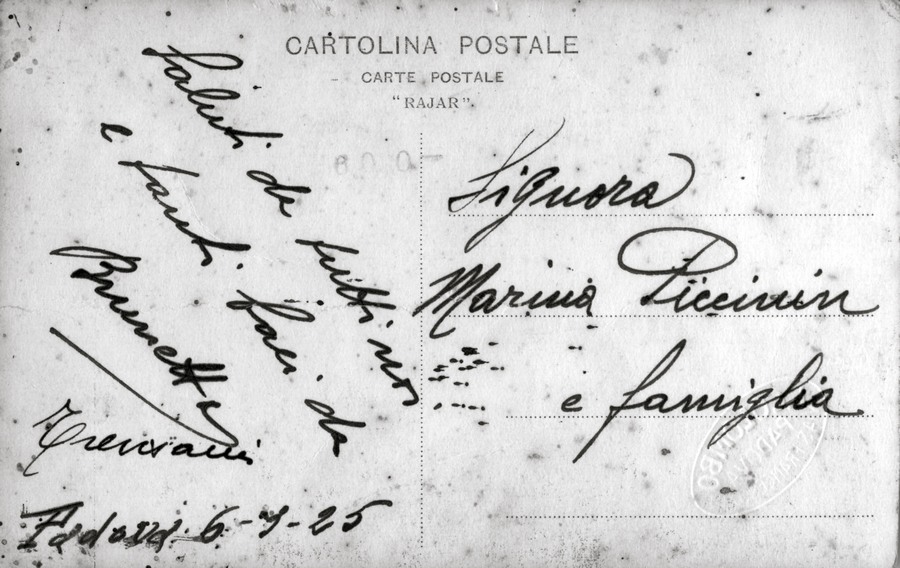 CARTOLINA POSTALE
CARTE POSTALE
"RAJAR".
Saluti da tutti noi
e tanti baci da
Brunetta
Padova 6-9-25
Signora
Marina Piccinin
e famiglia